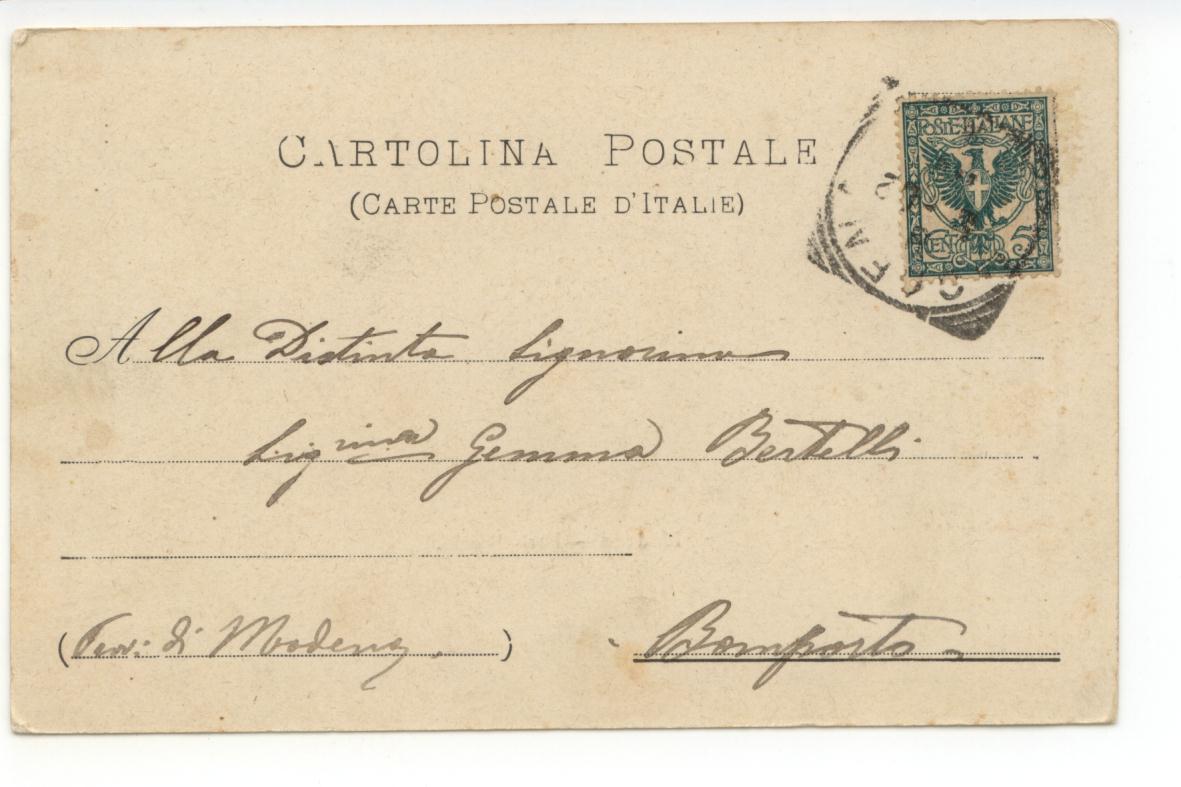 CARTOLINA POSTALE
(CARTE POSTALE D'ITALIE)
POSTE ITALIANE
CENT. 5
Alla Distinta Signorina
Sig.rina Gemma Bertelli
(Prov: di Modena.)
Bomporto